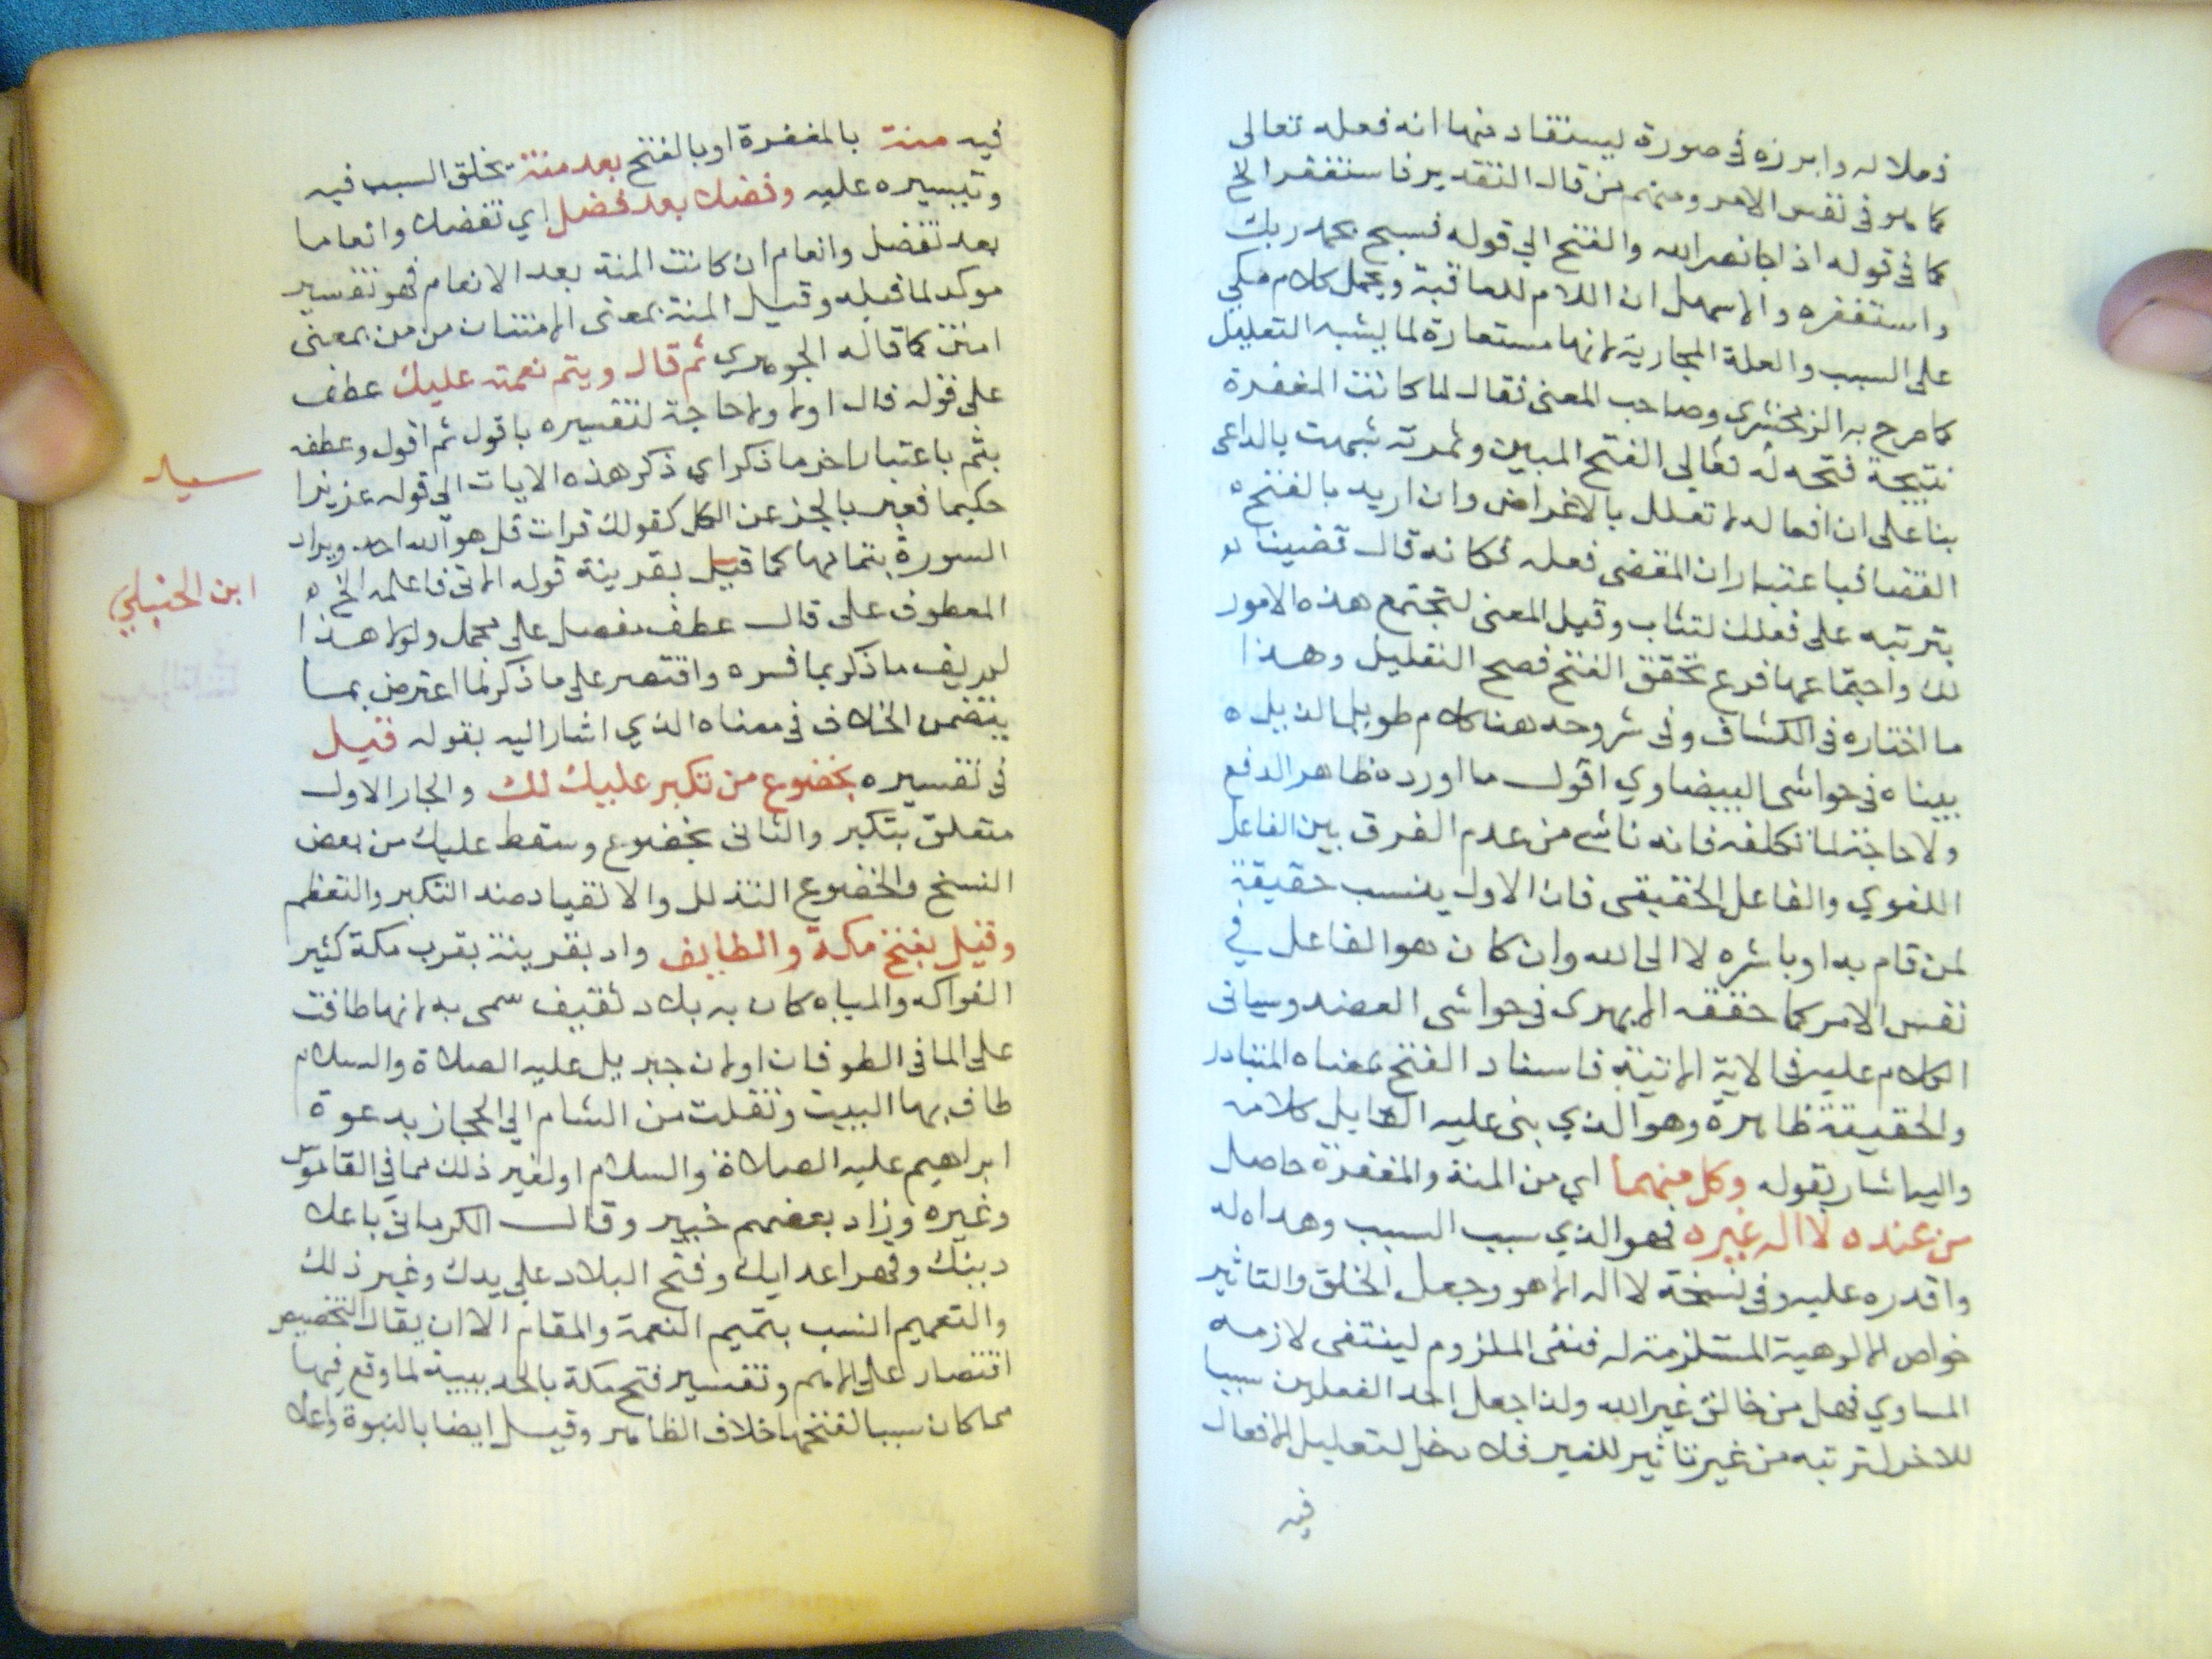 فعلا له وابرزه في صورة ليستفاد منها انه فعله تعالى
كما هو في نفس الامر ومنهم من قال التقدير فاستغفر الخ
كما في قوله اذا جا نصر الله والفتح الي قوله فسبح بحمد ربك
واستغفره والاسهل ان اللام للعاقبة ويحمل كلام مكي
على السبب والعلة المجازية لانها مستعارة لما يشبه التعليل
كما صرح به الزمخشري وصاحب المعنى فقال لما كانت المغفرة
نتيجة فتحه له تعالى الفتح المبين وثمرته شبهت بالداعى
بنا على ان افعاله لا تعلل بالاغراض وان اريد بالفتح
القضا فباعتبار ان المقضى فعله فكانه قال قضينا
بترتبه على فعلك لتثاب وقيل المعنى لتجتمع هذه الامور
لك واجتماعها فرع تحقق الفتح فصح التعليل وهذا
ما اختاره في الكشاف وفي شروحه هنا كلام طويل الذيل
بيناه في حواشى البيضاوي اقول ما اورده ظاهر الدفع
ولا حاجة لما تكلفه فانه ناشى من عدم الفرق بين الفاعل
اللغوي والفاعل الحقيقى فان الاول ينسب حقيقة
لمن قام به او باشره لا الى الله وان كان هو الفاعل في
نفس الامر كما حققه الابهرى في حواشى العضد وسياتى
الكلام عليه في الاية الاتية فاسناد الفتح بمعناه المتبادر
والحقيقة ظاهرة وهو الذي بنى عليه القايل كلامه
واليه اشار بقوله وكل منهما اي من المنة والمغفرة حاصل
من عنده لا اله غيره فهو الذي سبب السبب وهداه له
واقدره عليه وفي نسخة لا اله الا هو وجعل الخلق والتاثير
خواص الالوهية المستلزمة له فنفى الملزوم لينتفى لازمه
المساوي فهل من خالق غير الله ولذا جعل احد الفعلين سببا
للاخر لترتبه من غير تاثير للغير فلا دخل لتعليل الافعال
فيه
فيه منة بالمغفرة او بالفتح بعد منة بخلق السبب فيه
وتيسيره عليه وفضل بعد فضل اي تفضل وانعاما
بعد تفضل وانعام ان كانت المنة بعد الانعام فهو تفسير
موكد لما قبله وقيل المنة بمعنى الامتنان من من بمعنى
امتن كما قاله الجوهري ثم قال ويتم نعمته عليك عطف
على قوله قال اولا ولا حاجة لتفسيره باقول ثم اقول وعطفه
بثم باعتبار اخر ما ذكر اي ذكر هذه الايات الي قوله عزيزا
حكيما فعبر بالجز عن الكل كقولك قرات قل هو الله احد ويراد
السورة بتمامها كما قيل بقرينة قوله الاتى فاعلمه الخ
المعطوف على قال عطف مفصل على مجمل ولولا هذا
لم يف ما ذكر بما فسره واقتصر على ما ذكر لما اعترض بما
يتضمن الخلاف في معناه الذي اشار اليه بقوله قيل
في تفسيره بخضوع من تكبر عليك لك والجار الاول
متعلق بتكبر والثانى بخضوع وسقط عليك من بعض
النسخ والخضوع التذلل والانقياد ضد التكبر والتعظم
وقيل بفتح مكة والطايف واد بقرينة بقرب مكة كثير
الفواكه والمياه كان به بلاد ثقيف سمى به لانها طافت
على الما في الطوفان او لان جبريل عليه الصلاة والسلام
طاف بها البيت ونقلت من الشام الي الحجاز بدعوة
ابراهيم عليه الصلاة والسلام او لغير ذلك مما في القاموس
وغيره وزاد بعضهم خيبر وقال الكرمانى باعلا
دينك وقهر اعدايك وفتح البلاد على يدك وغير ذلك
والتعميم انسب بتتميم النعمة والمقام الا ان يقال التخصيص
اقتصار على الاهم وتفسير فتح مكة بالحديبية لما وقع فيها
مما كان سببا لفتحها خلاف الظاهر وقيل ايضا بالنبوة واعلا
ابن الحنبلي